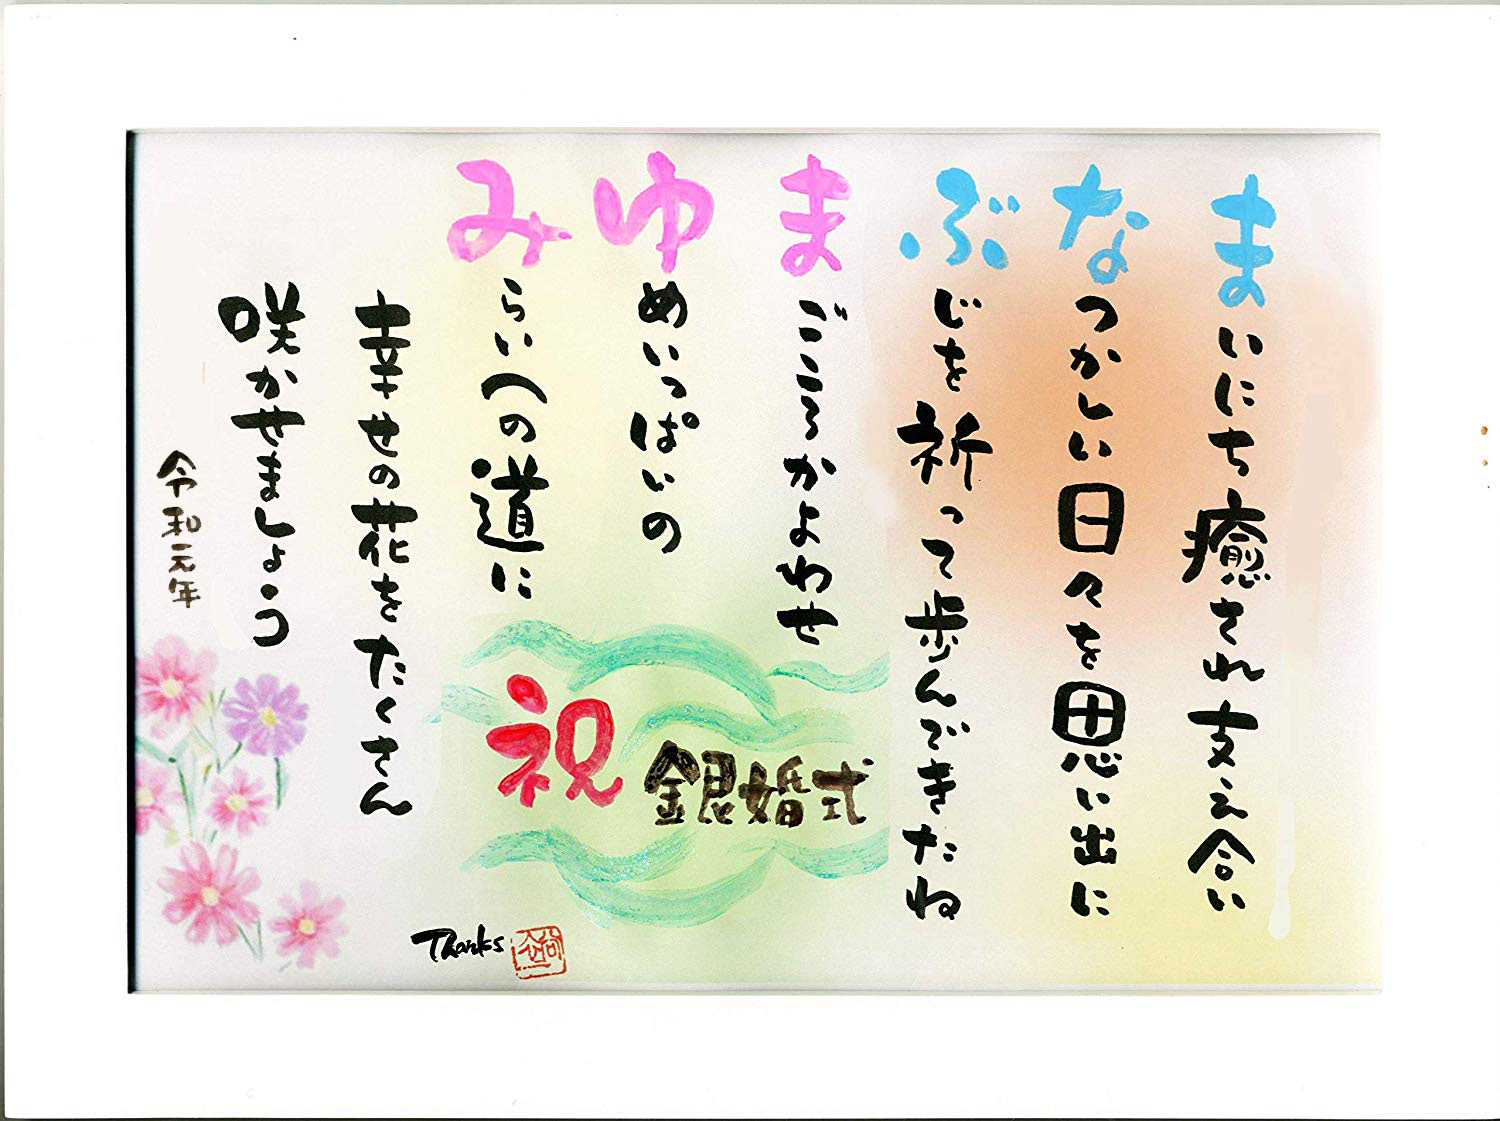 まいにち癒され支え合い
なつかしい日々を思い出に
ぶじを祈って歩んできたね
まごころかよわせ
ゆめいっぱいの
みらいへの道に
幸せの花をたくさん
咲かせましょう
令和元年
祝 銀婚式
Thanks